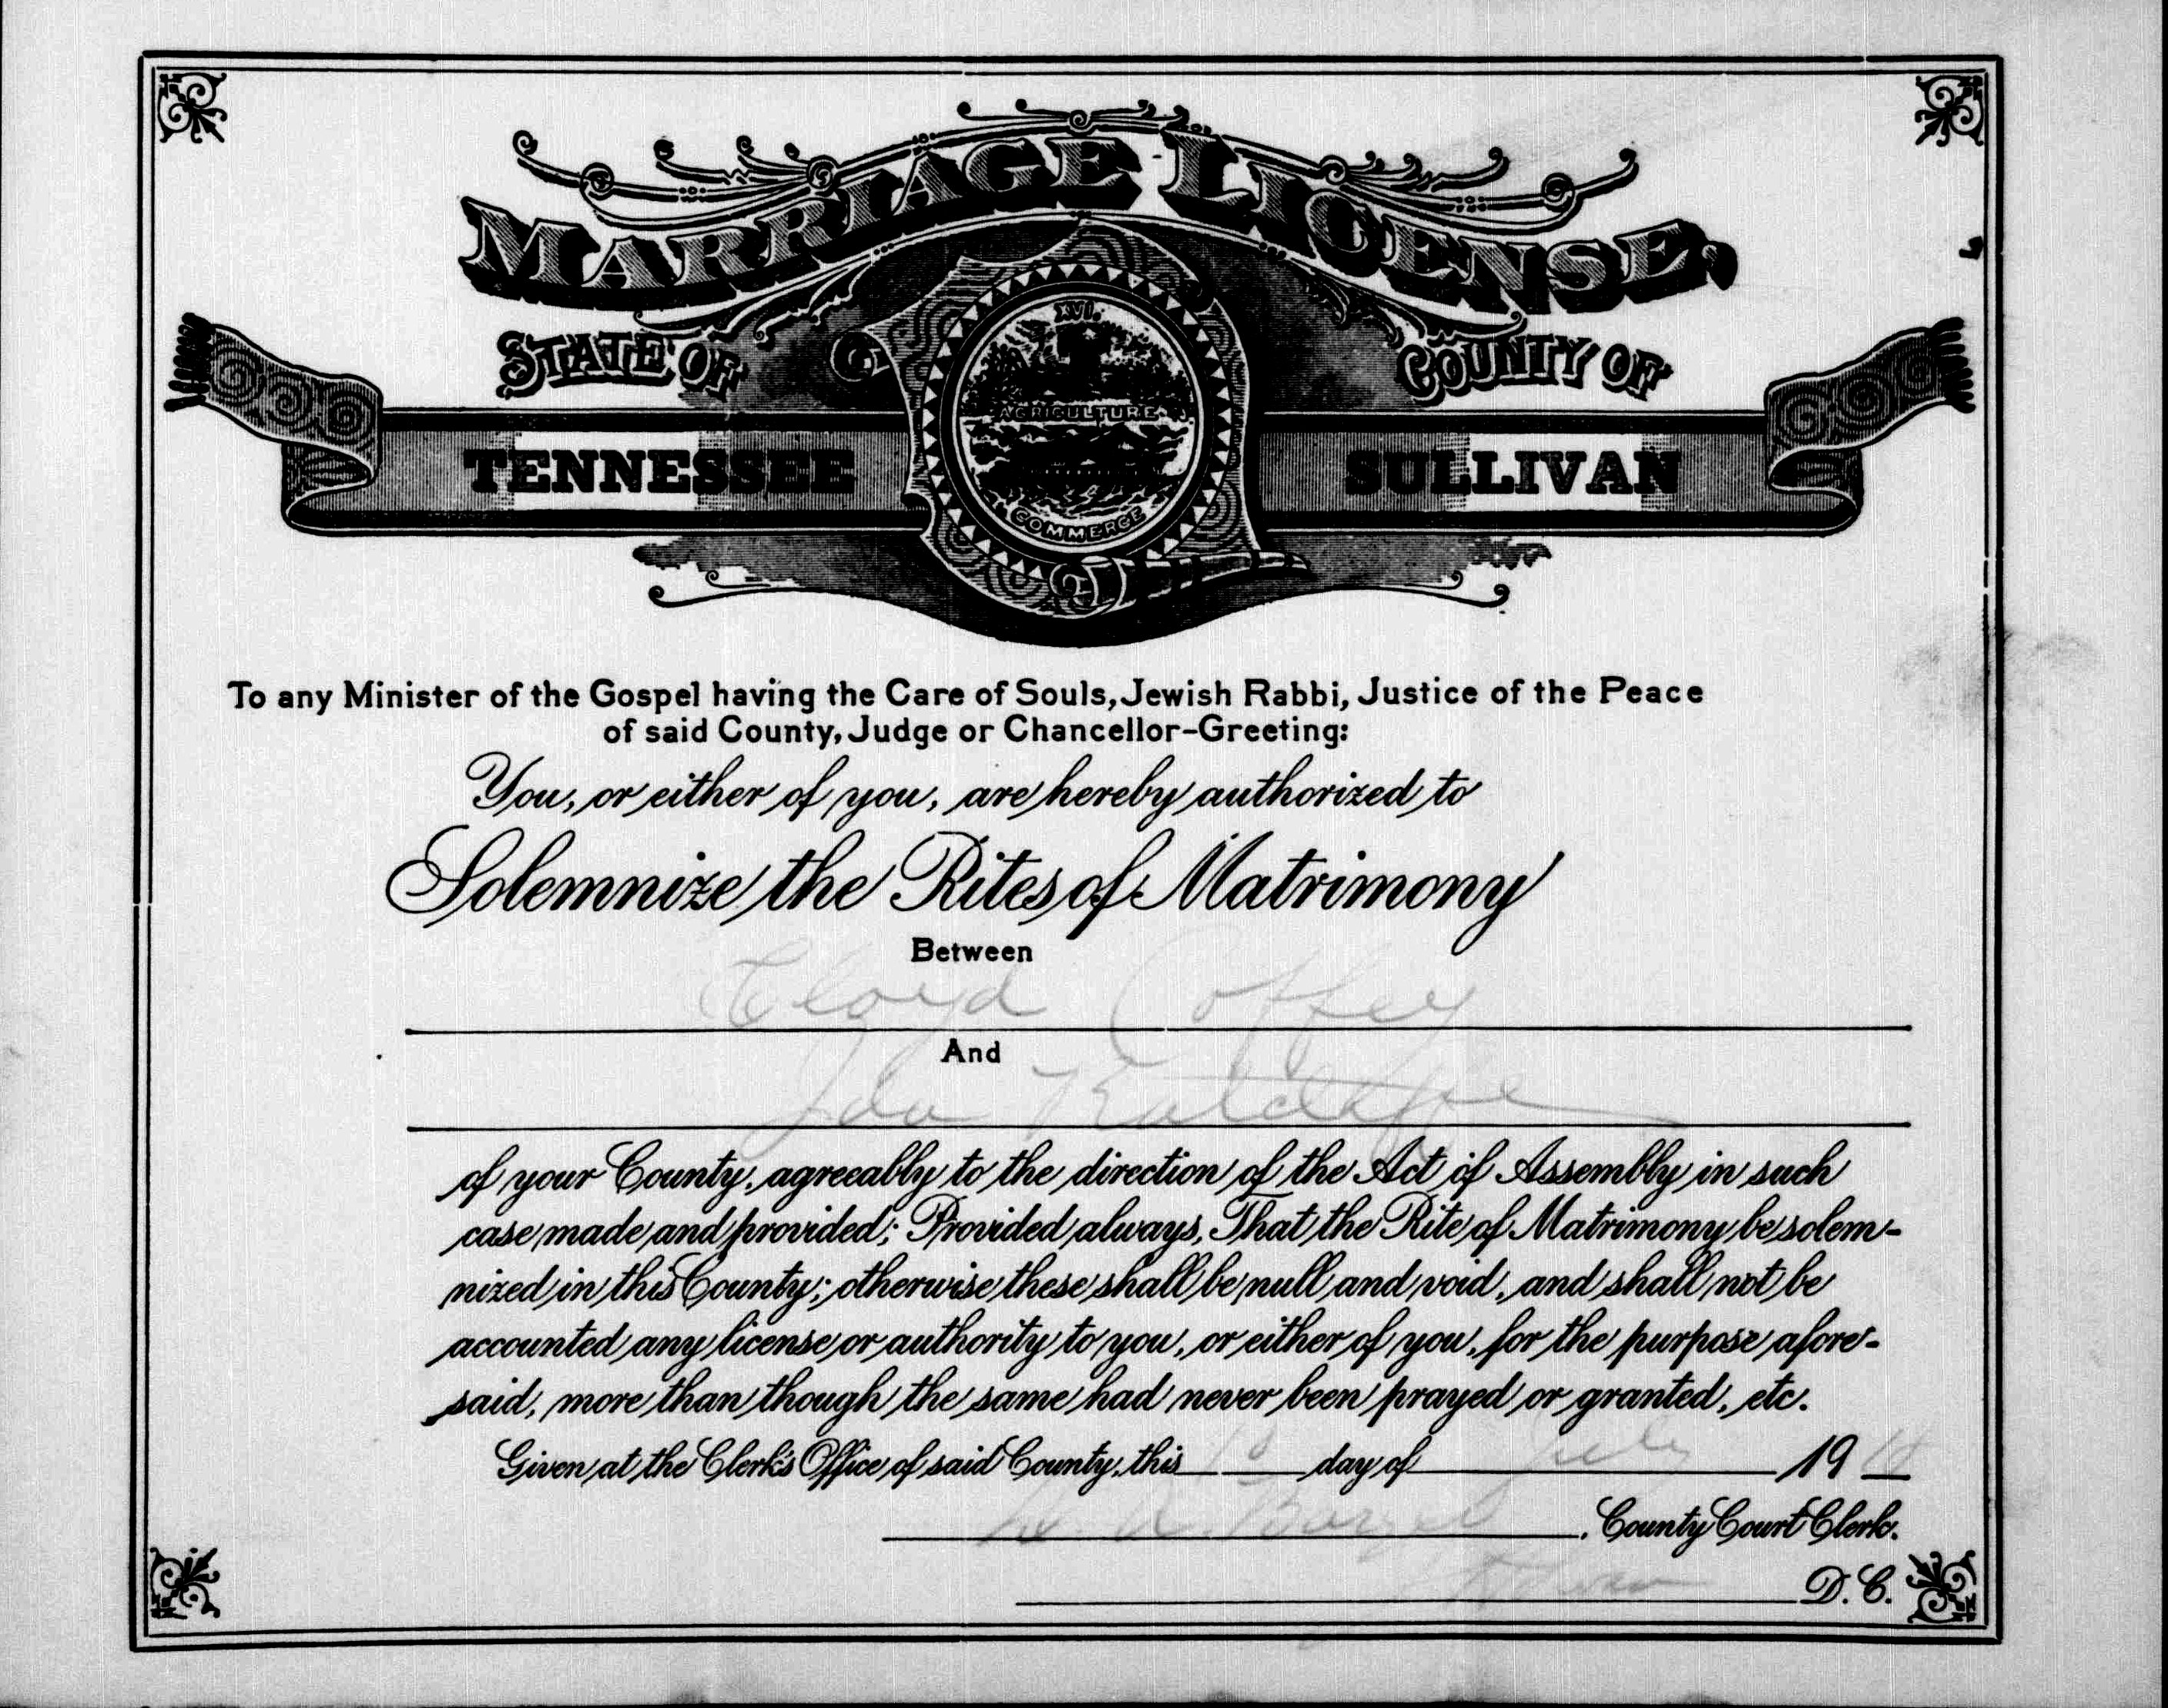 MARRIAGE LICENSE,
STATE OF
COUNTY OF
XVI.
AGRICULTURE
TENNESSEE
SULLIVAN
COMMERCE
To any Minister of the Gospel having the Care of Souls, Jewish Rabbi, Justice of the Peace
of said County, Judge or Chancellor-Greeting:
You, or either of you, are hereby authorized to
Solemnize the Rites of Matrimony
Between
Coffey
And
Ida
of your County, agreeably to the direction of the Act of Assembly in such
case made and provided; Provided always, That the Rite of Matrimony be solem-
nized in this County; otherwise these shall be null and void, and shall not be
accounted any license or authority to you, or either of you, for the purpose afore-
said, more than though the same had never been prayed or granted, etc.
Given at the Clerk's Office of said County, this 10 day of July 19
County Court Clerk.
D. C.